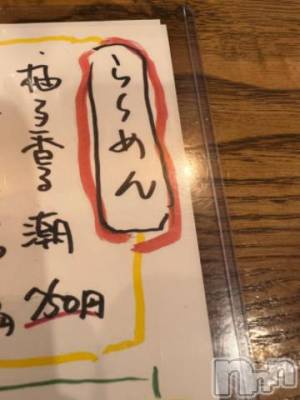 らーめん
柚子香る 潮
750円
円